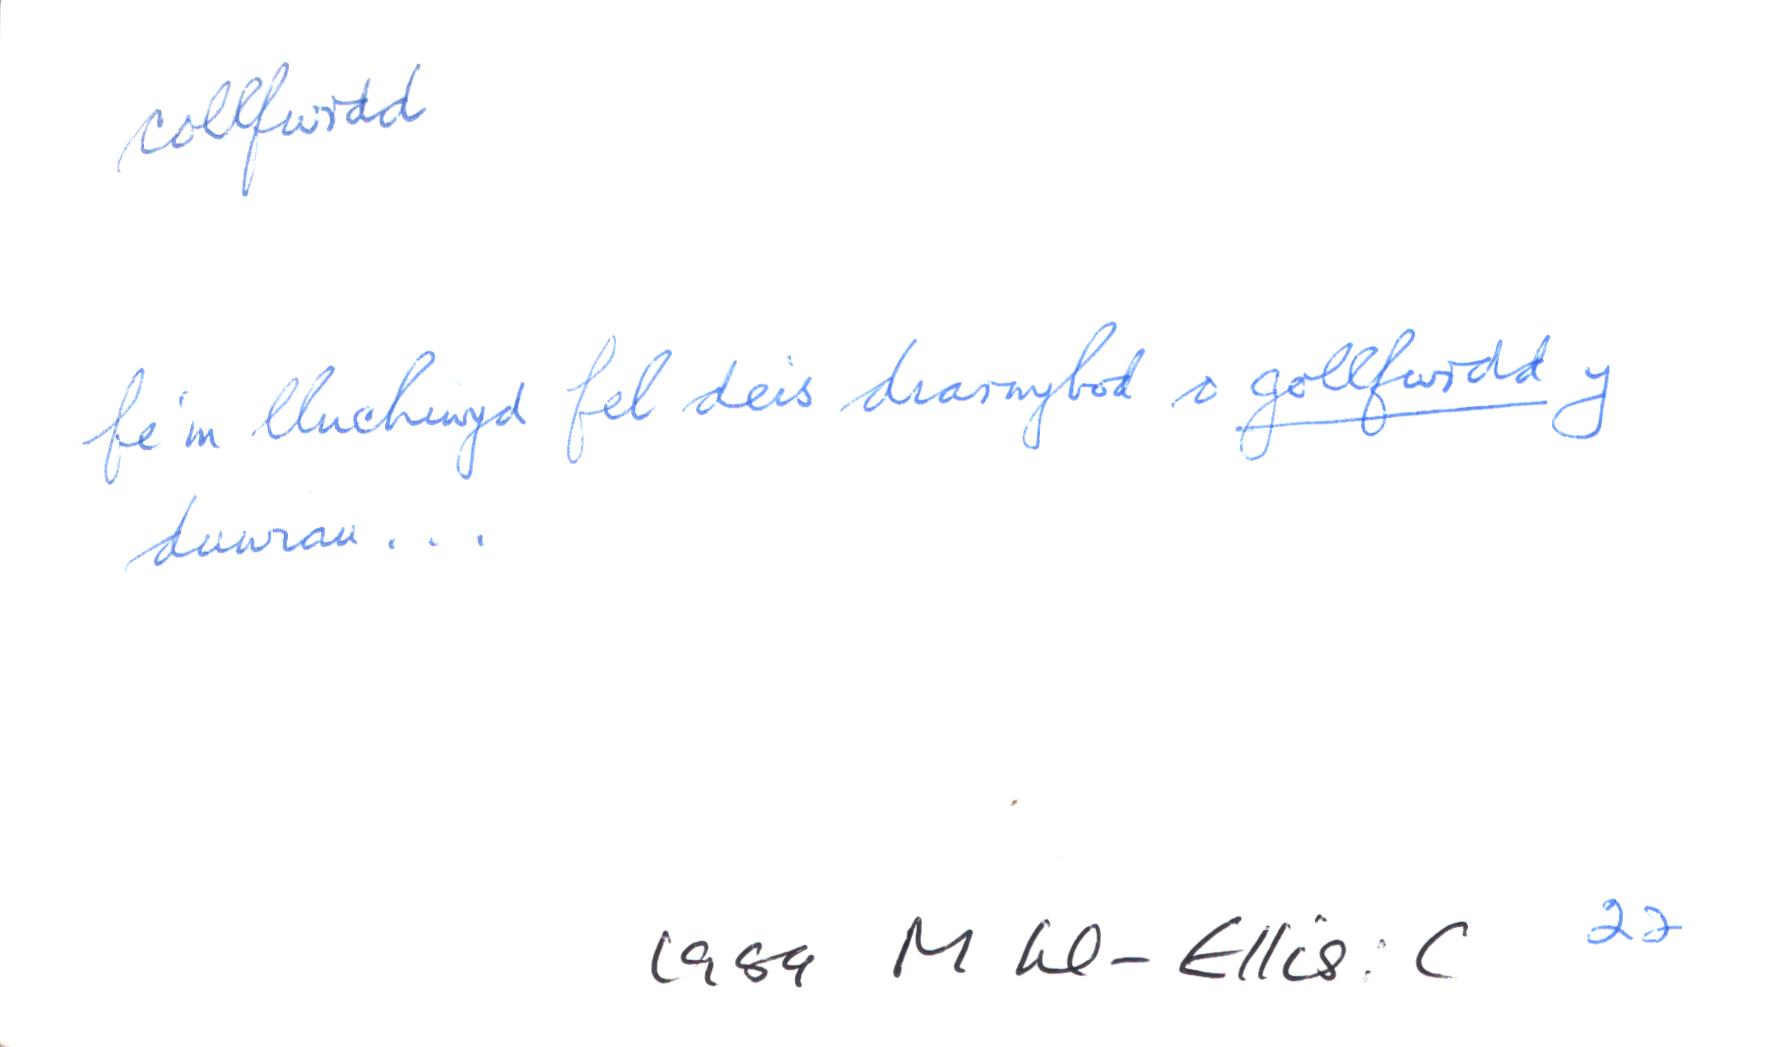 collfwrdd
fe'm lluchiwyd fel deis diarwybod o gollfwrdd y
duwiau . . .
1989 M Wl-Ellis: C 22